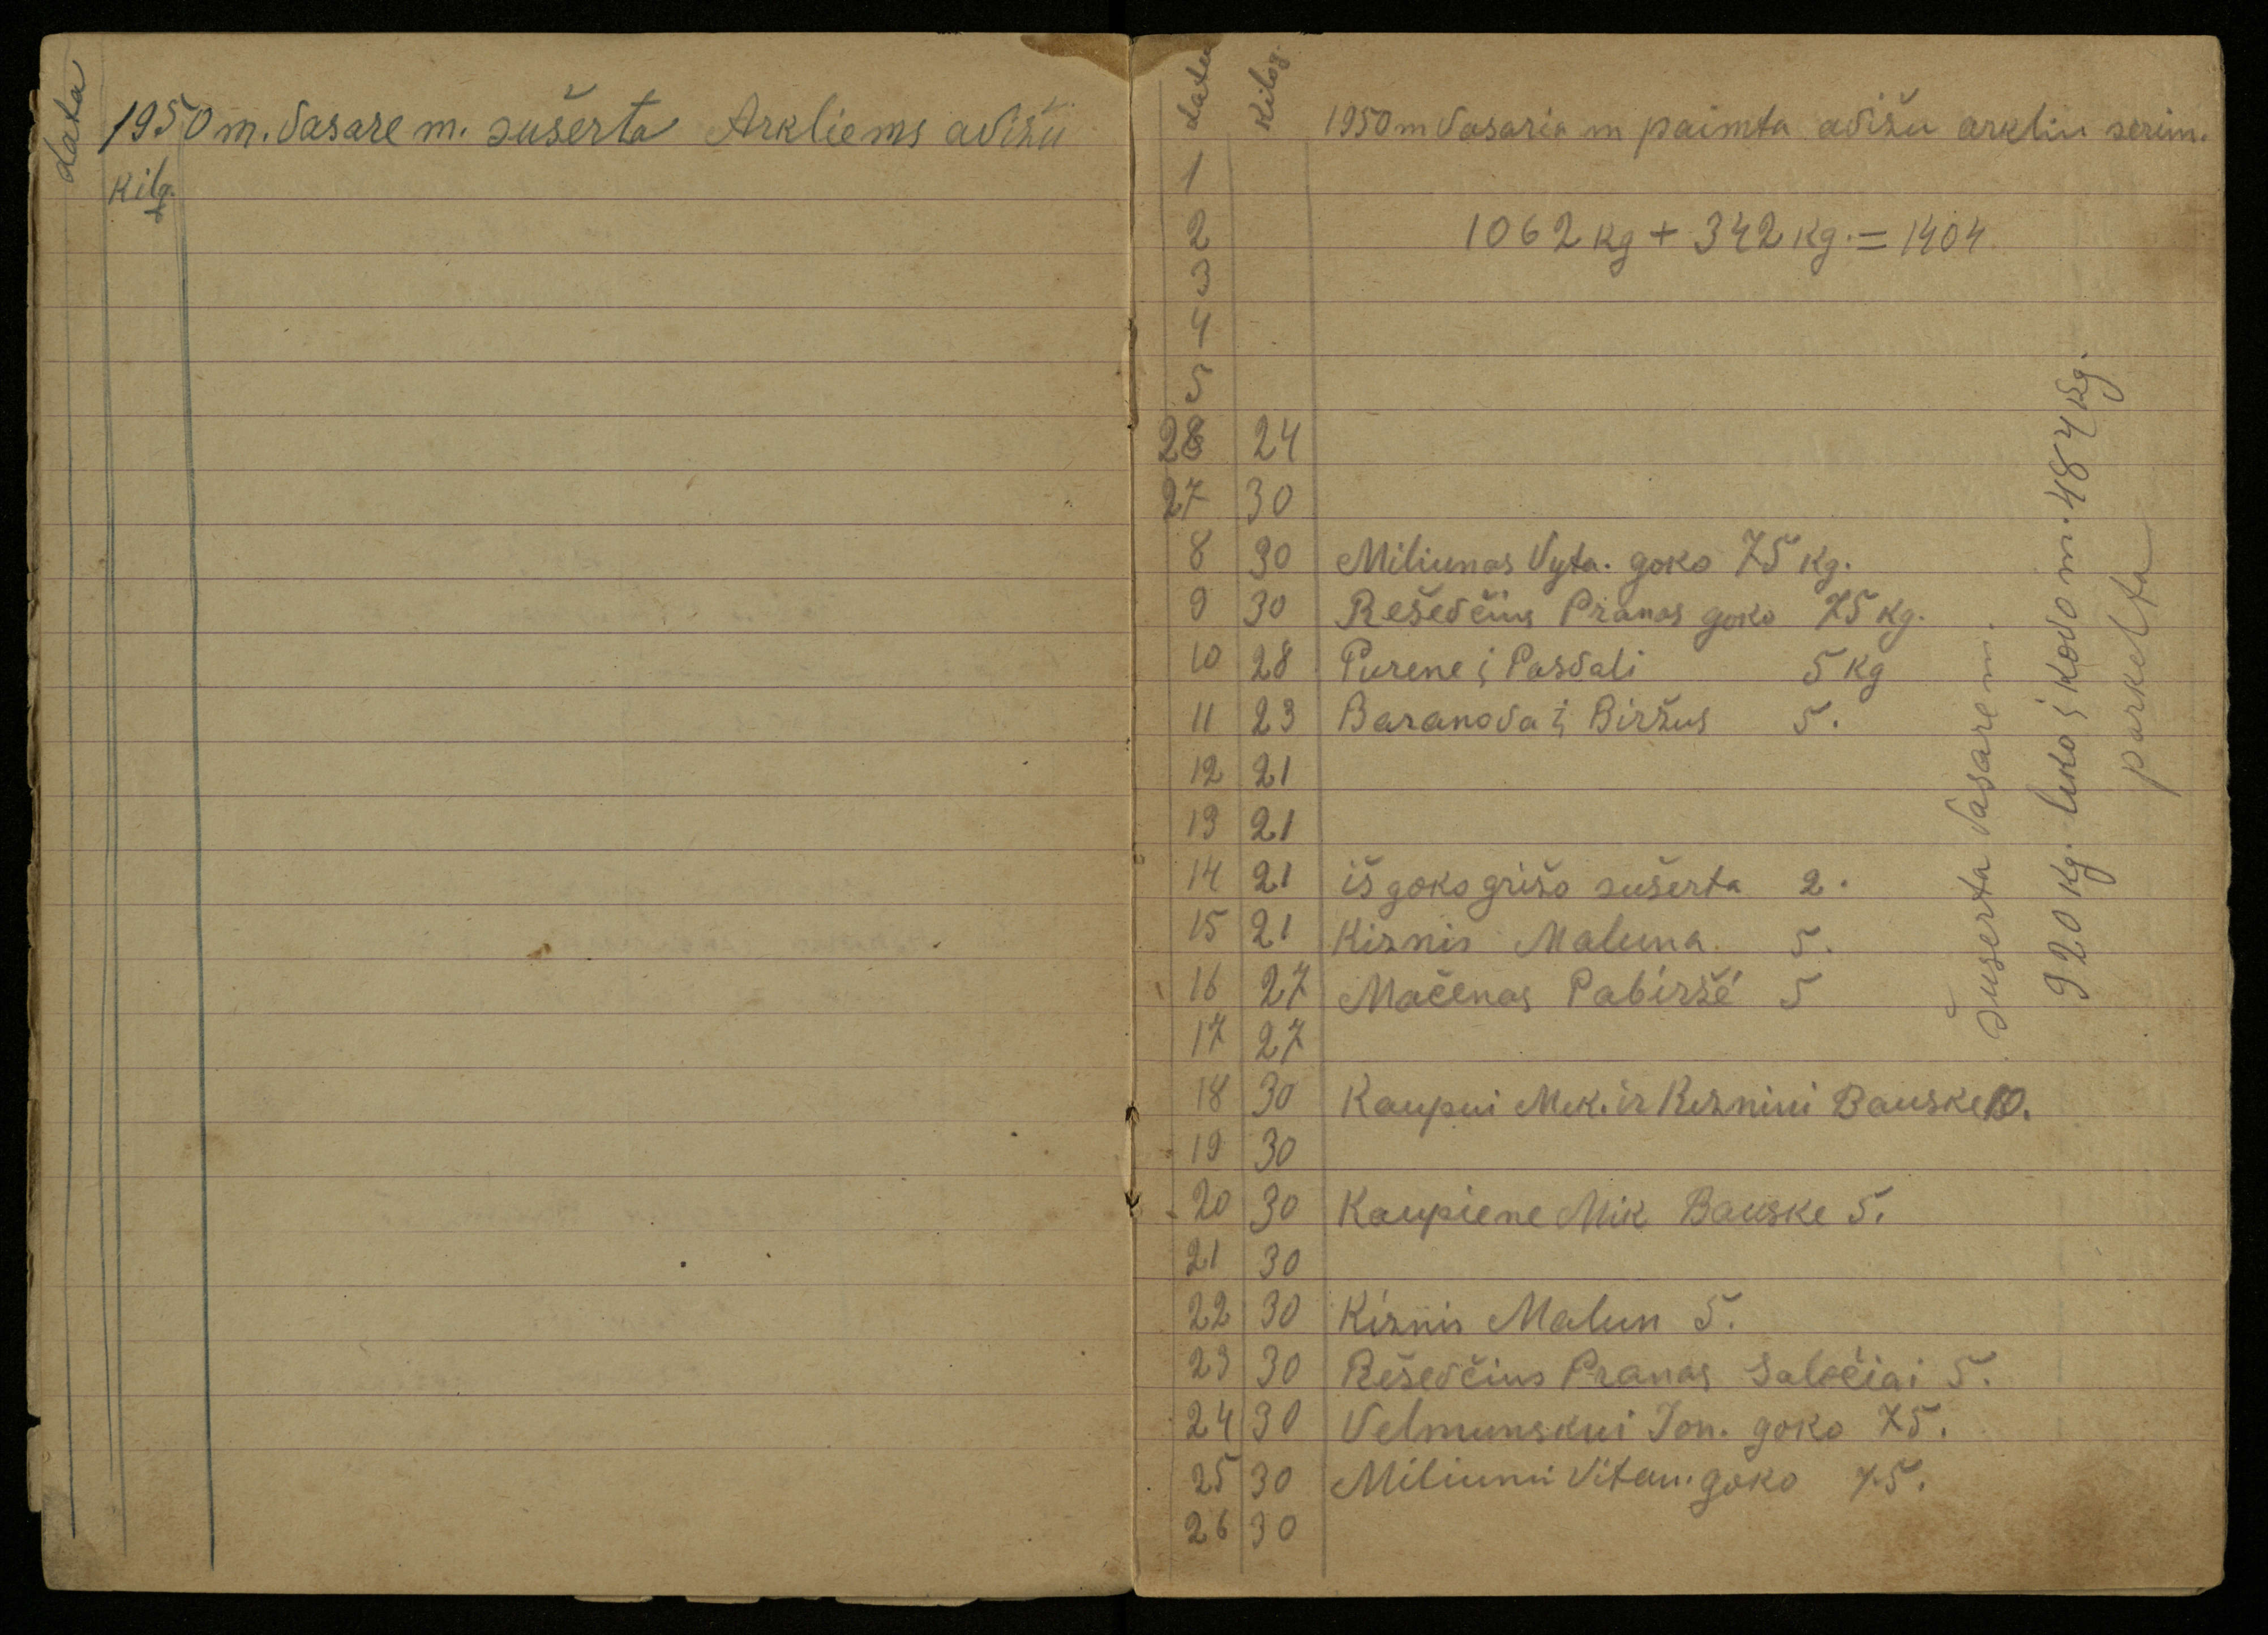 data
1950 m. vasare m. sušerta Arkliems avižu
kilg.
data kilog. 1950 m vasaria m paimta avižu arkliu serim.
1
2 1062 kg + 342 kg. = 1404
3
4
5
28 24
27 30
8 30 Miliunas Vyta. goko 75 kg.
9 30 Reševčius Pranas goko 75 kg.
10 28 Purene į Pasvali 5 kg
11 23 Baranova į Biržus 5.
12 21
13 21
14 21 iš goko grišo sušerta 2.
15 21 Kiznis Maluna. 5.
16 27 Mačenas Pabiržė 5
17 27
18 30 Kaupui Mik. ir Kizniui Bauske 10.
19 30
20 30 Kaupiene Mik Bauske 5.
21 30
22 30 Kiznis Malun 5.
23 30 Reševčius Pranas Saločiai 5.
24 30 Velmunskui Jon. goko 75.
25 30 Miliunui Vitau. goko 75.
26 30
Sušerta vasare m.
920 kg. liko į kovo m. 484 kg.
parkelta